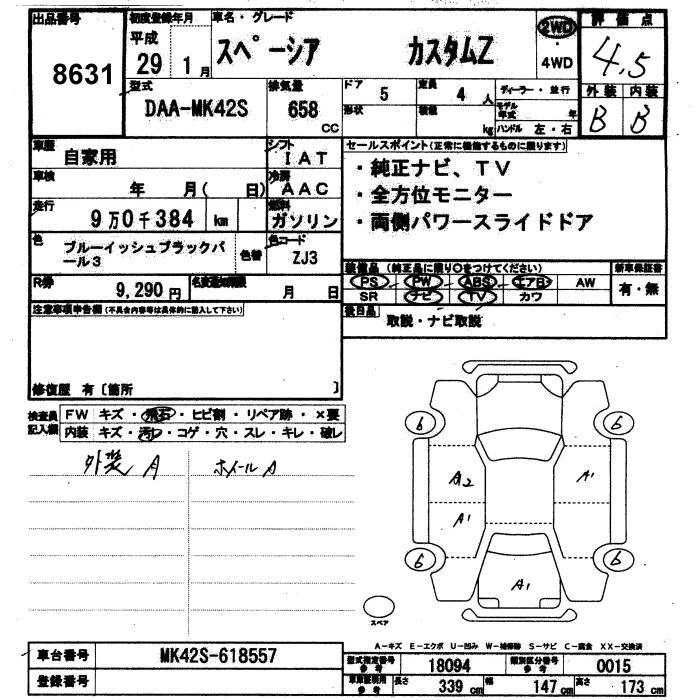 出品番号
8631
初度登録年月
平成
29 1月
車名・グレード
スペーシア カスタムZ
2WD
・
4WD
評価点
4.5
外装 内装
B B
型式
DAA-MK42S
排気量
658
CC
ドア
5
形状
定員
4人
積載
kg
ディーラー・並行
モデル年式 年
ハンドル 左・右
車歴
自家用
シフト
IAT
車検
年 月( 日)
冷房
AAC
走行
9万0千384 km
燃料
ガソリン
色
ブルーイッシュブラックパール3
色替
色コード
ZJ3
R券
9,290円
名変通知期限
月 日
セールスポイント(正常に機能するものに限ります)
・純正ナビ、TV
・全方位モニター
・両側パワースライドドア
装備品 (純正品に限り○をつけてください)
PS PW ABS エアB AW
SR ナビ TV カワ
新車保証書
有・無
後日品
取説・ナビ取説
注意事項申告欄(不具合内容等は具体的に記入して下さい)
修復歴 有〔箇所 〕
検査員記入欄
FW キズ・飛石・ヒビ割・リペア跡・×要
内装 キズ・汚レ・コゲ・穴・スレ・キレ・破レ
外装 A ホイール A
6 6
A2 A1
A1
6 6
A1
スペア
A-キズ E-エクボ U-凹み W-補修跡 S-サビ C-腐食 XX-交換済
車台番号
MK42S-618557
登録番号
型式指定番号 参考
18094
類別区分番号 参考
0015
車庫証明用 参考
長さ 339cm
幅 147cm
高さ 173cm